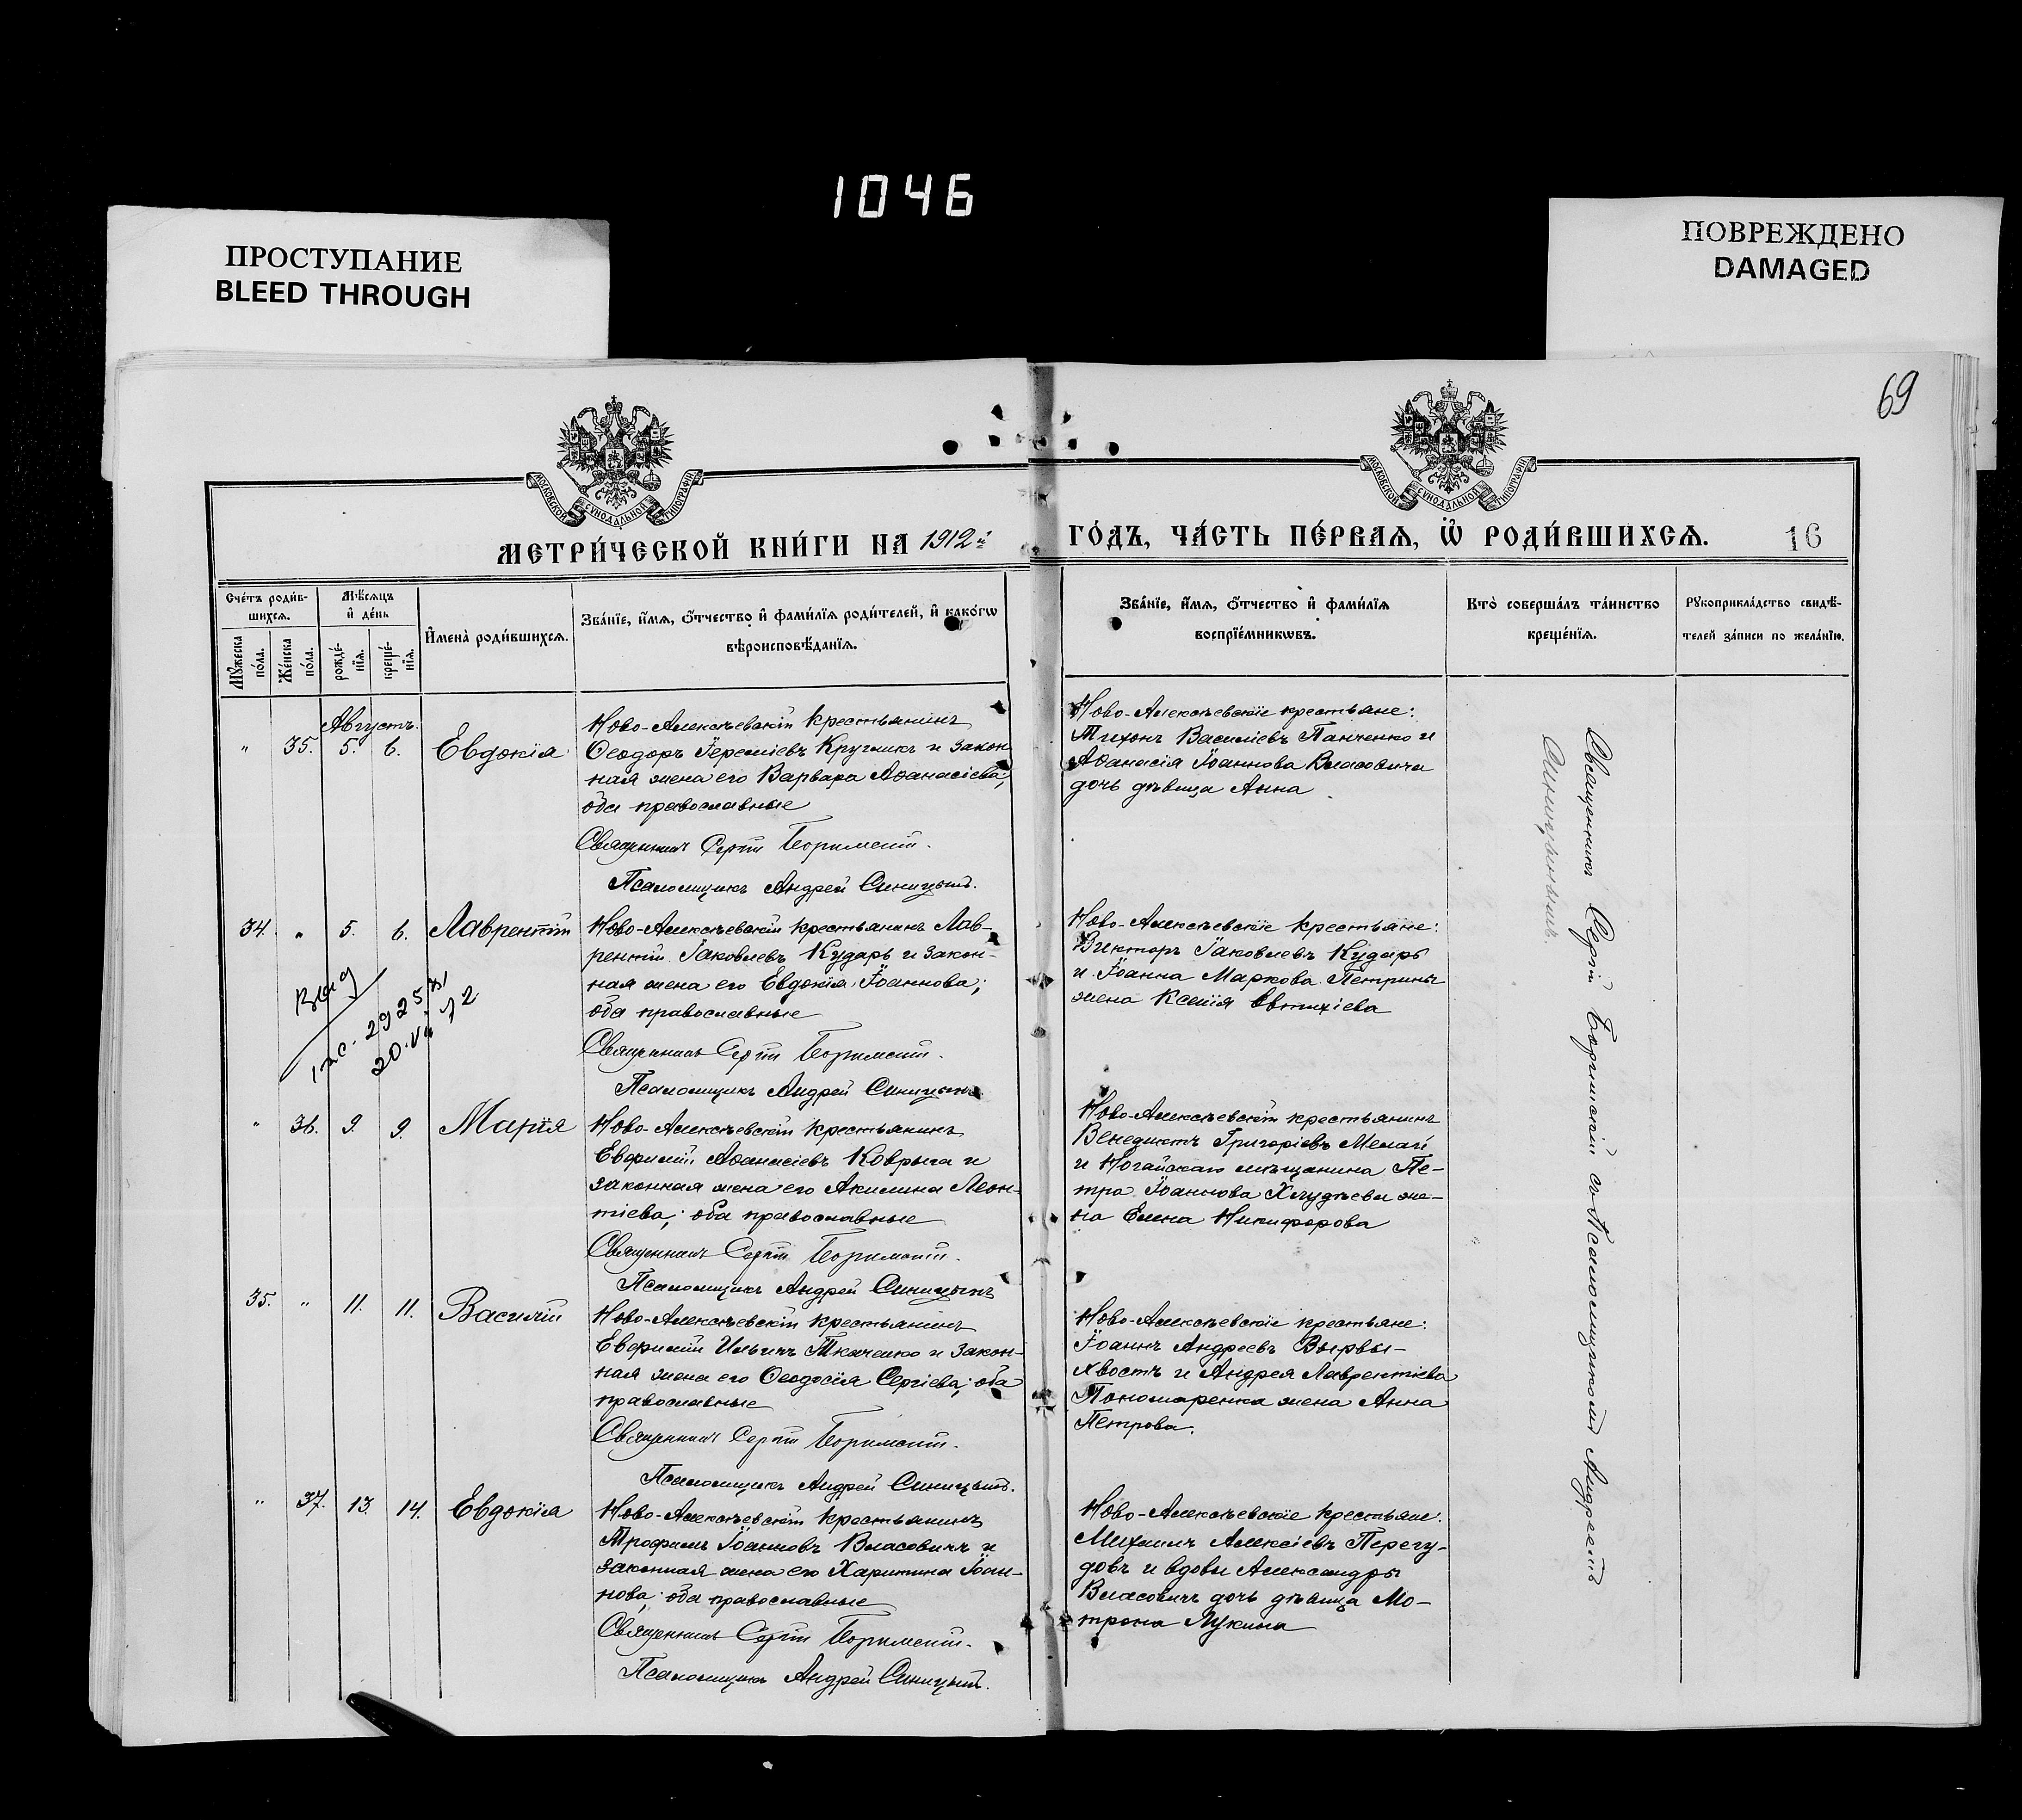 1046
ПРОСТУПАНИЕ
BLEED THROUGH
ПОВРЕЖДЕНО
DAMAGED
69
МОСКОВСКОЙ СѴНОДАЛЬНОЙ ТИПОГРАФІИ
МОСКОВСКОЙ СѴНОДАЛЬНОЙ ТИПОГРАФІИ
МЕТРИ́ЧЕСКОЙ КНИ́ГИ НА 1912й ГО́ДЪ, ЧА́СТЬ ПЕ́РВАѦ, Ѡ҆ РОДИ́ВШИХСѦ. 16
Сче́тъ роди́в-
шихсѧ.
Мꙋ́жеска по́ла.
Же́нска по́ла.
Мѣ́сѧцъ
и҆ де́нь
рожде́-
нїѧ.
креще́-
нїѧ.
И҆мена̀ роди́вшихсѧ.
Зва́нїе, и҆́мѧ, ѻ҆́тчество и҆ фами́лїѧ роди́телей, и҆ како́гѡ
вѣроисповѣ́данїѧ.
Зва́нїе, и҆́мѧ, ѻ҆́тчество и҆ фами́лїѧ
воспрїе́мникѡвъ.
Кто̀ соверша́лъ та́инство
креще́нїѧ.
Рꙋкоприкла́дство свидѣ́-
телей за́писи по жела́нїю.
Августъ.
" 35. 5. 6. Евдокія
Ново-Алексѣевскій крестьянинъ
Ѳеодоръ Іереміевъ Кругликъ и закон
ная жена его Варвара Аѳанасіева;
оба православные
Священникъ Сергій
Псаломщикъ Андрей Синицынъ.
Ново-Алексѣевскіе крестьяне:
Тихонъ Василіевъ Панченко и
Аѳанасія Іоаннова Власовича
дочь дѣвица Анна
34. " 5. 6. Лаврентій
Ново-Алексѣевскій крестьянинъ Лав-
рентій Іаковлевъ Кударь и закон-
ная жена его Евдокія Іоаннова;
оба православные
Священникъ Сергій
Псаломщикъ Андрей Синицынъ
Ново-Алексѣевскіе крестьяне:
Викторъ Іаковлевъ Кударь
и Іоанна Маркова Петрины
жена Ксенія Евтихіева
" 36. 9. 9. Марія
Ново-Алексѣевскій крестьянинъ
Евфимій Аѳанасіевъ Коврыга и
законная жена его Акилина Леон-
тіева; оба православные
Священникъ Сергій
Псаломщикъ Андрей Синицынъ
Ново-Алексѣевскій крестьянинъ
Венедиктъ Григоріевъ
и Ногайскаго мѣщанина Пе-
тра Іоаннова Хлудѣева же-
на Елена Никифорова
35. " 11. 11. Василій
Ново-Алексѣевскій крестьянинъ
Евфимій Ильинъ Ткаченко и закон-
ная жена его Ѳеодосія Сергіева; оба
православные
Священникъ Сергій
Псаломщикъ Андрей Синицынъ.
Ново-Алексѣевскіе крестьяне:
Іоаннъ Андреевъ Вырви-
хвостъ и Андрея Лаврентіева
Пономаренка жена Анна
Петрова.
" 37. 13. 14. Евдокія
Ново-Алексѣевскій крестьянинъ
Трофимъ Іоанновъ Власовичъ и
законная жена его Харитина Іоан-
нова; оба православные
Священникъ Сергій
Псаломщикъ Андрей Синицынъ.
Ново-Алексѣевскіе крестьяне:
Михаилъ Алексіевъ Перегу-
довъ и вдовы Александры
Власовичъ дочь дѣвица Мо-
трона Лукина
Священникъ Сергій съ Псаломщикомъ Андреемъ
Синицынымъ.